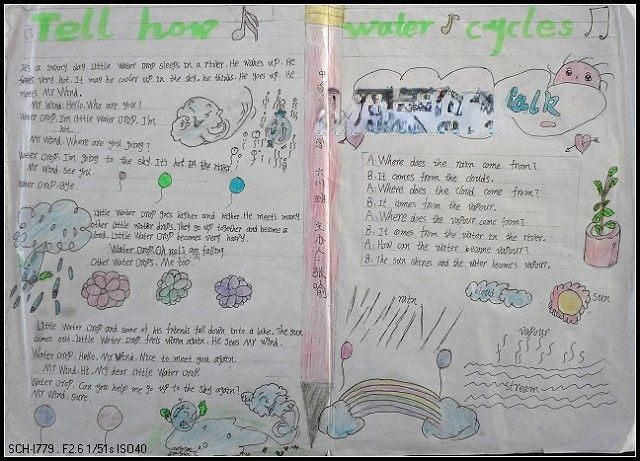 Tell how water cycles
It's a sunny day. Little Water Drop sleeps in a river. He wakes up. He
feels very hot. It may be cooler up in the sky, he thinks. He goes up. He
meets Mr Wind.
Mr Wind: Hello. Who are you?
Water Drop: I'm Little Water Drop. I'm
hot.
Mr Wind: Where are you going?
Water Drop: I'm going to the sky. It's hot in the river!
Mr Wind: See you.
Water Drop: Bye.
Little Water Drop goes higher and higher. He meets many
other little water drops. They go up together and become a
cloud. Little Water Drop becomes very heavy.
Water Drop: Oh no! I am falling.
Other Water Drops: Me too.
Little Water Drop and some of his friends fall down into a lake. The sun
comes out. Little Water Drop feels warm again. He sees Mr Wind.
Water Drop: Hello, Mr Wind. Nice to meet you again.
Mr Wind: Hi. My dear Little Water Drop.
Water Drop: Can you help me go up to the sky again?
Mr Wind: Sure.
六
主办:张
talk
A: Where does the rain come from?
B: It comes from the clouds.
A: Where does the cloud come from?
B: It comes from the vapour.
A: Where does the vapour come from?
B: It comes from the water in the river.
A: How can the water become vapour?
B: The sun shines and the water becomes vapour.
rain
cloud
sun
vapour
stream
SCH-I779 . F2.6 1/51s ISO40